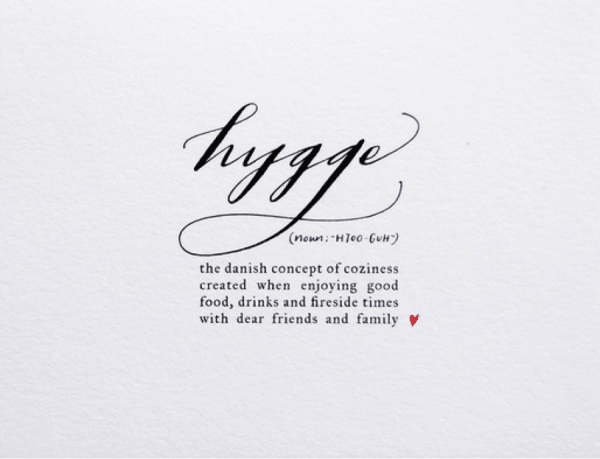 hygge
(noun; "HYOO-GUH")
the danish concept of coziness
created when enjoying good
food, drinks and fireside times
with dear friends and family